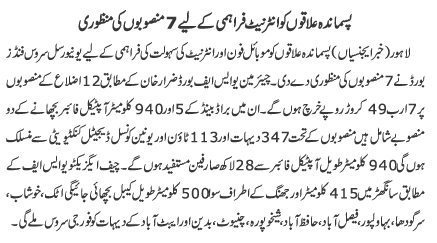 پسماندہ علاقوں کو انٹرنیٹ فراہمی کے لیے 7 منصوبوں کی منظوری
لاہور (خبر ایجنسیاں) پسماندہ علاقوں کو موبائل فون اور انٹرنیٹ کی سہولت کی فراہمی کے لیے یونیورسل سروس فنڈ ز
بورڈ نے 7 منصوبوں کی منظوری دے دی۔ چیئرمین یو ایس ایف بورڈ ضرار خان کے مطابق 12 اضلاع کے منصوبوں
پر 7 ارب 49 کروڑ روپے خرچ ہوں گے۔ ان میں براڈ بینڈ کے 5 اور 940 کلومیٹر آپٹیکل فائبر بچھانے کے دو
منصوبے شامل ہیں منصوبوں کے تحت 347 دیہات اور 113 ٹاؤن اور یونین کونسل ڈیجیٹل کنکٹیویٹی سے منسلک
ہوں گی 940 کلومیٹر طویل آپٹیکل فائبر سے 28 لاکھ صارفین مستفید ہوں گے۔ چیف ایگزیکٹو یو ایس ایف کے
مطابق سانگھڑ میں 415 کلومیٹر اور جھنگ کے اطراف سوا 500 کلومیٹر طویل کیبل بچھائی جائیگی اٹک، خوشاب،
سرگودھا، بہاولپور، فیصل آباد، حافظ آباد، شیخوپورہ، چنیوٹ، بدین اور ایبٹ آباد کے دیہات کو فور جی سروس ملے گی۔